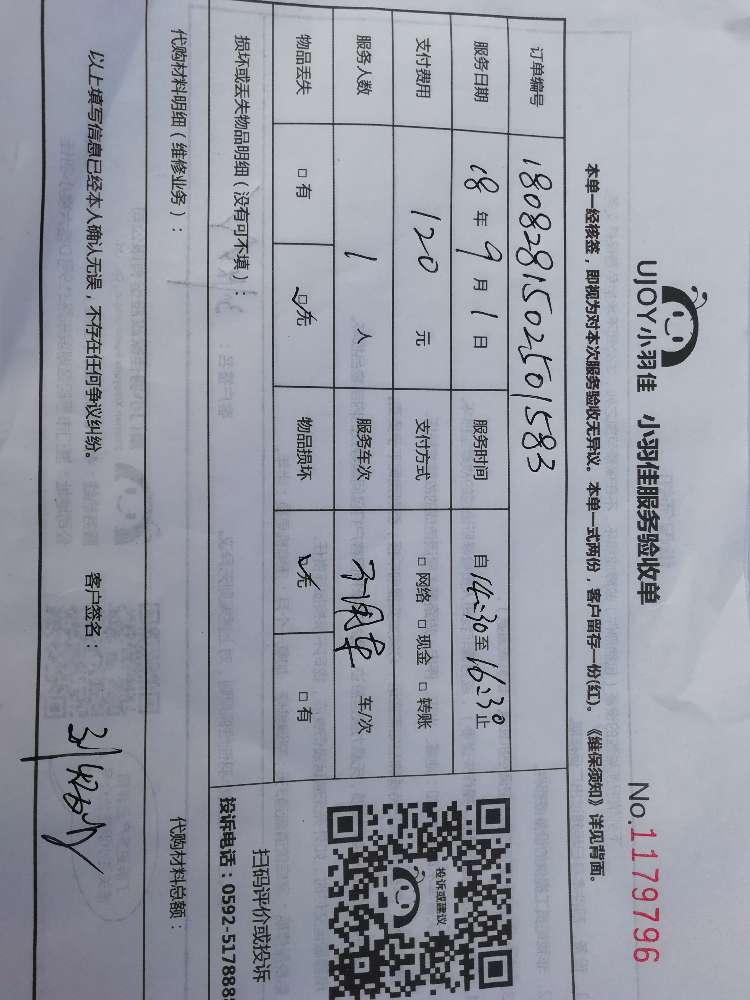 UJOY小羽佳 小羽佳服务验收单
No.1179796
本单一经核签，即视为对本次服务验收无异议。本单一式两份，客户留存一份(红)。《维保须知》详见背面。
订单编号 180828150250 1583
服务日期 18年9月1日 服务时间 自14:30至16:30止
支付费用 120元 支付方式 □网络 □现金 □转账
服务人数 1人 服务车次 不用车 车/次
物品丢失 □有 ☑无 物品损坏 ☑无 □有
损坏或丢失物品明细（没有可不填）：
代购材料明细（维修业务）： 代购材料总额：
以上填写信息已经本人确认无误，不存在任何争议纠纷。 客户签名：
投诉或建议
扫码评价或投诉
投诉电话：0592-5178888